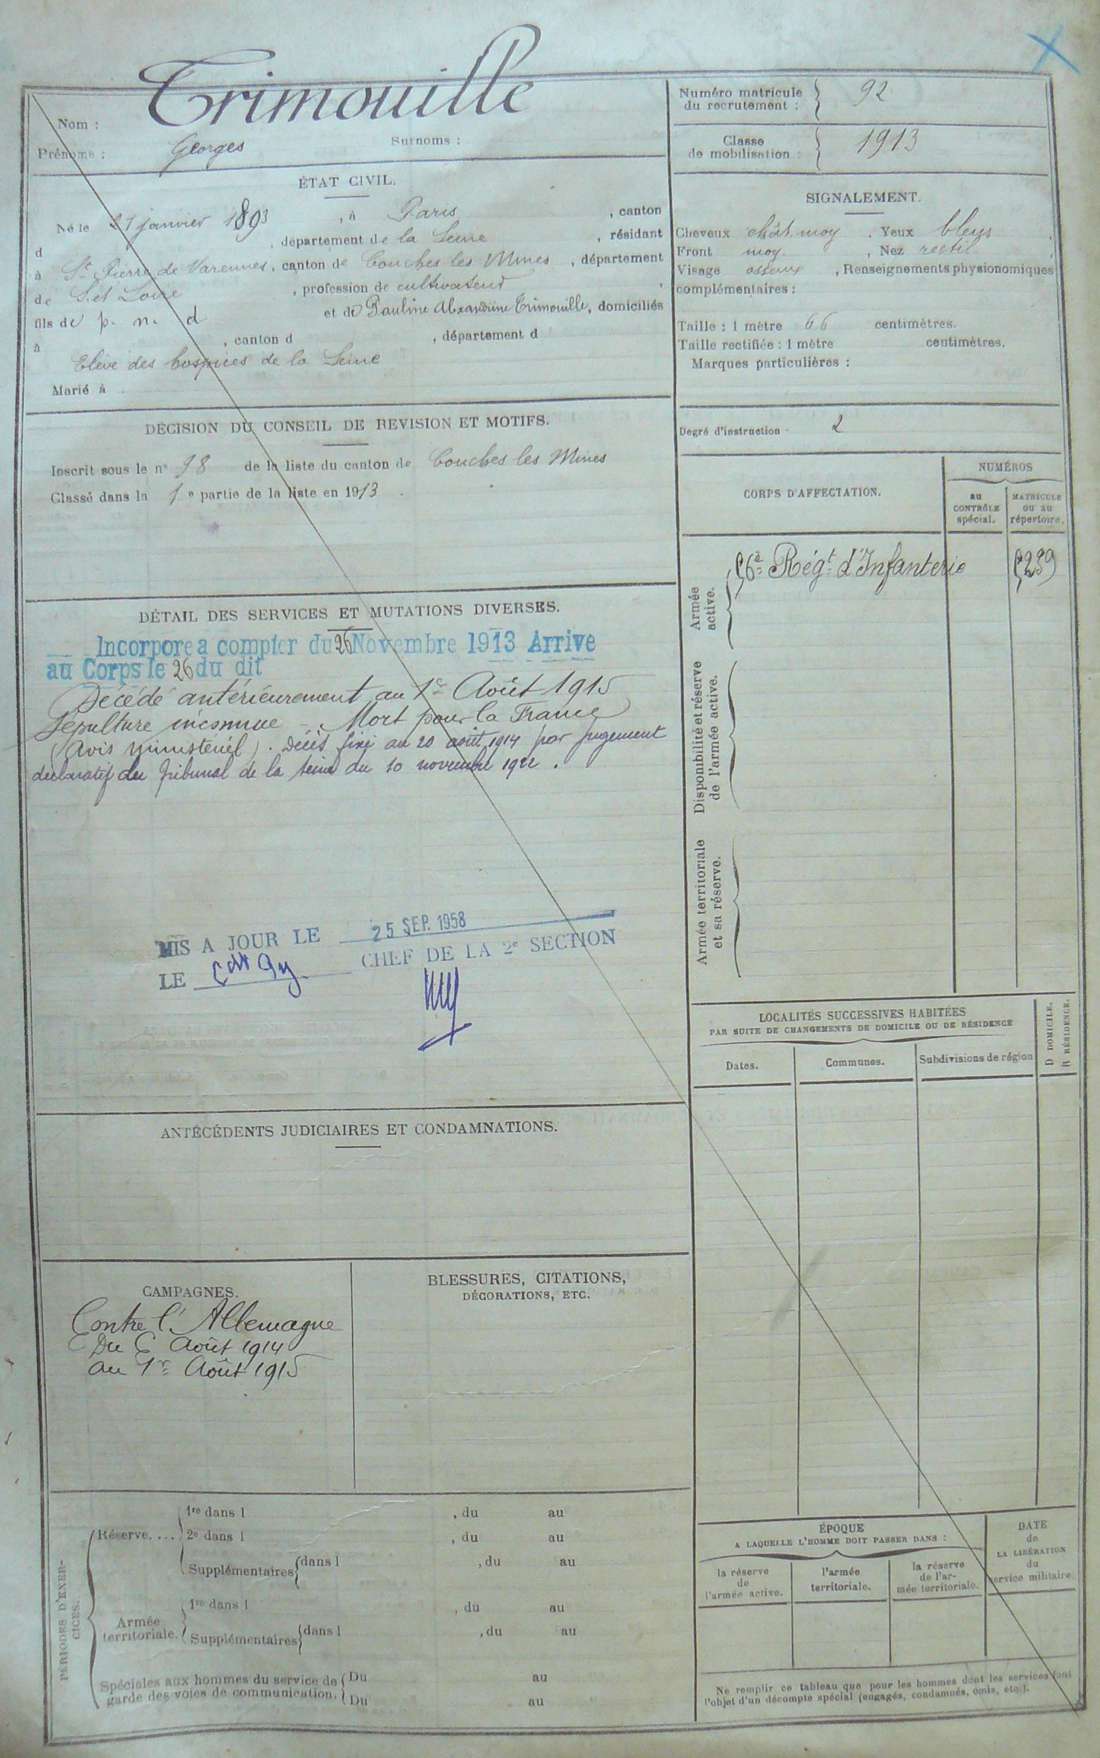 Nom : Trimouille
Prénoms : Georges Surnoms :
Numéro matricule du recrutement : 92
Classe de mobilisation : 1913
ÉTAT CIVIL.
Né le 27 janvier 1893, à Paris, canton
d , département de la Seine, résidant
à St Pierre de Varennes, canton de Couches les Mines, département
de S. et Loire, profession de cultivateur
fils de p. n. d et de Pauline Alexandrine Trimouille, domiciliés
à , canton d , département d
Elève des hospices de la Seine
Marié à
SIGNALEMENT.
Cheveux chât. moy. Yeux bleus
Front moy. , Nez rectil.
Visage osseux, Renseignements physionomiques
complémentaires :
Taille : 1 mètre 66 centimètres.
Taille rectifiée : 1 mètre centimètres.
Marques particulières :
Degré d'instruction · 2
DÉCISION DU CONSEIL DE REVISION ET MOTIFS.
Inscrit sous le n° 98 de la liste du canton de Couches les Mines
Classé dans la 1re partie de la liste en 1913.
CORPS D'AFFECTATION.
NUMÉROS
au CONTRÔLE spécial.
MATRICULE ou au répertoire.
Armée active.
56e Régt d'Infanterie 5289
Disponibilité et réserve de l'armée active.
Armée territoriale et sa réserve.
DÉTAIL DES SERVICES ET MUTATIONS DIVERSES.
Incorpore a compter du 26 Novembre 1913 Arrive
au Corps le 26 du dit
Décédé antérieurement au 1er Août 1915
Sépulture inconnue - Mort pour la France
(Avis ministériel). Décès fixé au 20 août 1914 par jugement
déclaratif du Tribunal de la Seine du 10 novembre 1922.
MIS A JOUR LE 25 SEP. 1958
LE CHEF DE LA 2e SECTION
LOCALITÉS SUCCESSIVES HABITÉES
PAR SUITE DE CHANGEMENTS DE DOMICILE OU DE RÉSIDENCE
D DOMICILE.
R RÉSIDENCE.
Dates. Communes. Subdivisions de région
ANTÉCÉDENTS JUDICIAIRES ET CONDAMNATIONS.
CAMPAGNES.
Contre l'Allemagne
Du 5 Août 1914
au 1er Août 1915
BLESSURES, CITATIONS,
DÉCORATIONS, ETC.
PÉRIODES D'EXERCICES.
Réserve. ...
1re dans l , du au
2e dans l , du au
Supplémentaires dans l , du au
Armée territoriale.
1re dans l , du au
Supplémentaires dans l , du au
Spéciales aux hommes du service de garde des voies de communication.
Du au
Du au
ÉPOQUE
A LAQUELLE L'HOMME DOIT PASSER DANS :
la réserve de l'armée active.
l'armée territoriale.
la réserve de l'armée territoriale.
DATE de LA LIBÉRATION du service militaire.
Ne remplir ce tableau que pour les hommes dont les services font
l'objet d'un décompte spécial (engagés, condamnés, omis, etc.).